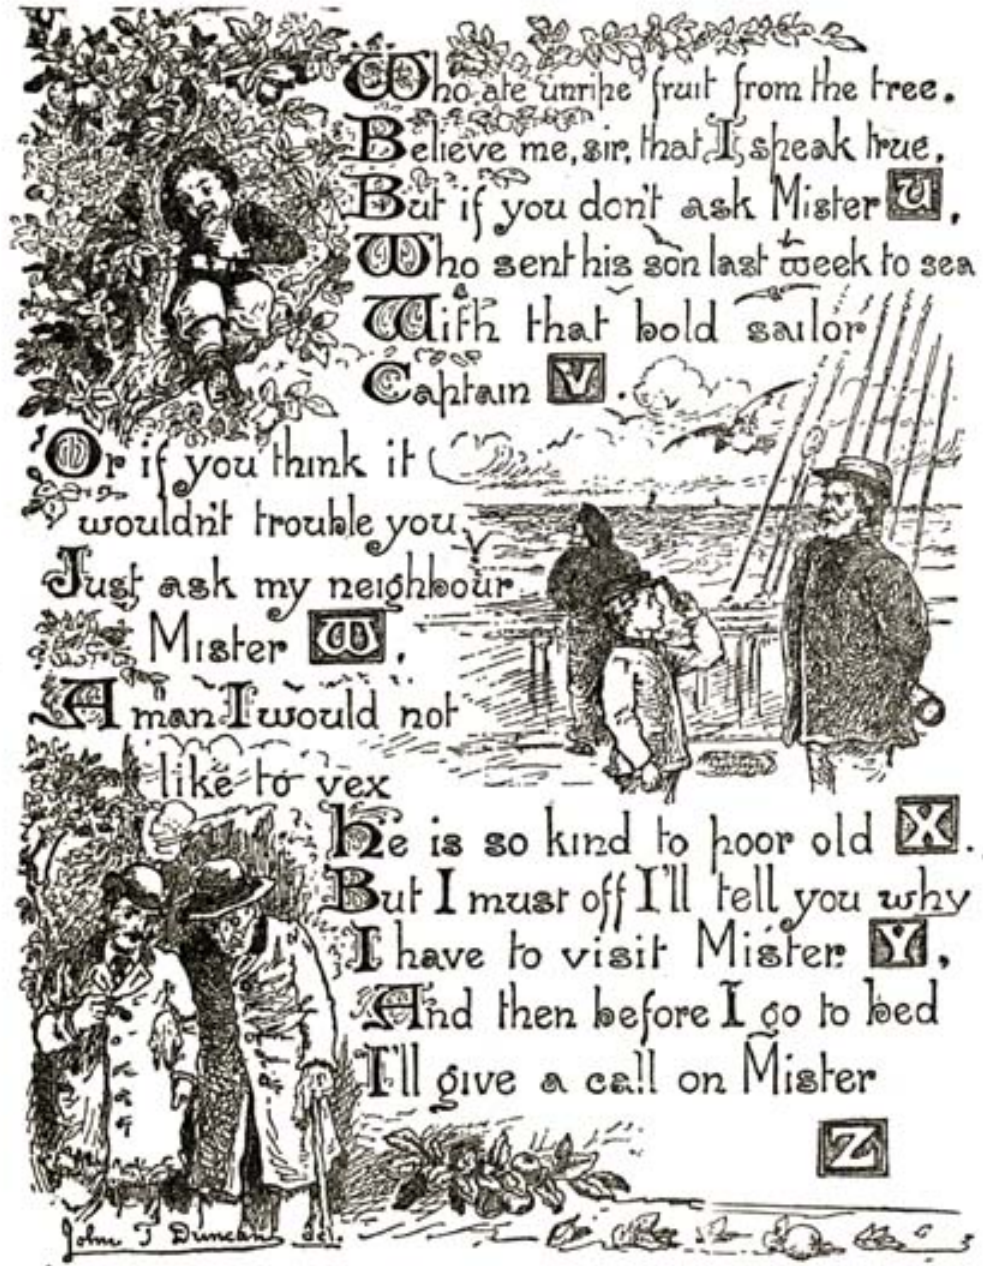 Who ate unripe fruit from the tree.
Believe me, sir, that I speak true,
But if you don't ask Mister U,
Who sent his son last week to sea
With that bold sailor
Captain V.
Or if you think it
wouldn't trouble you,
Just ask my neighbour
Mister W,
A man I would not
like to vex
He is so kind to poor old X.
But I must off I'll tell you why
I have to visit Mister Y,
And then before I go to bed
I'll give a call on Mister
Z
John T Duncan del.